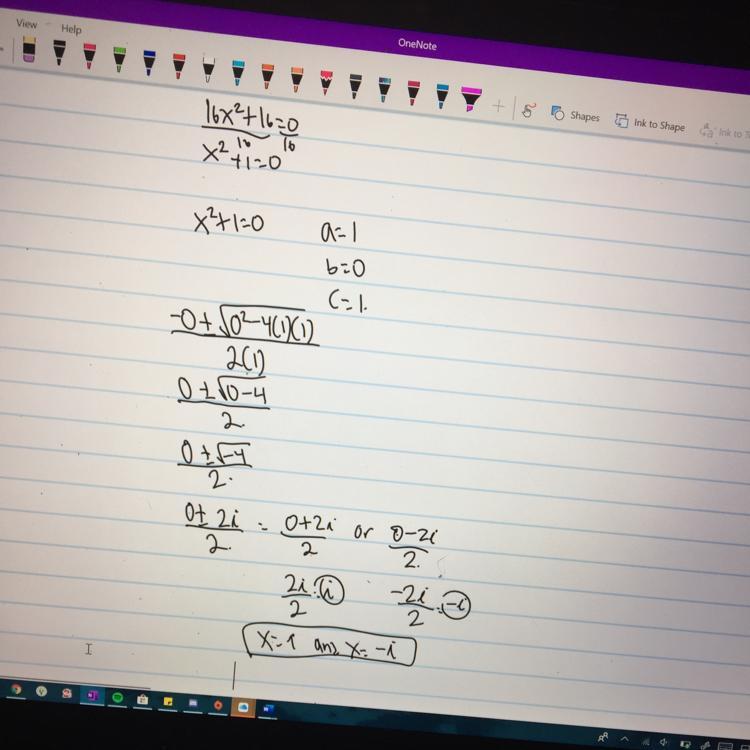 View Help
OneNote
Shapes
Ink to Shape
16x²+16=0
16 16
x²+1=0
x²+1=0 a=1
b=0
c=1.
-0±√0²-4(1)(1)
2(1)
0±√0-4
2.
0±√-4
2.
0± 2i = 0+2i or 0-2i
2. 2 2.
2i = i -2i = -i
2 2
x=1 ans x= -i